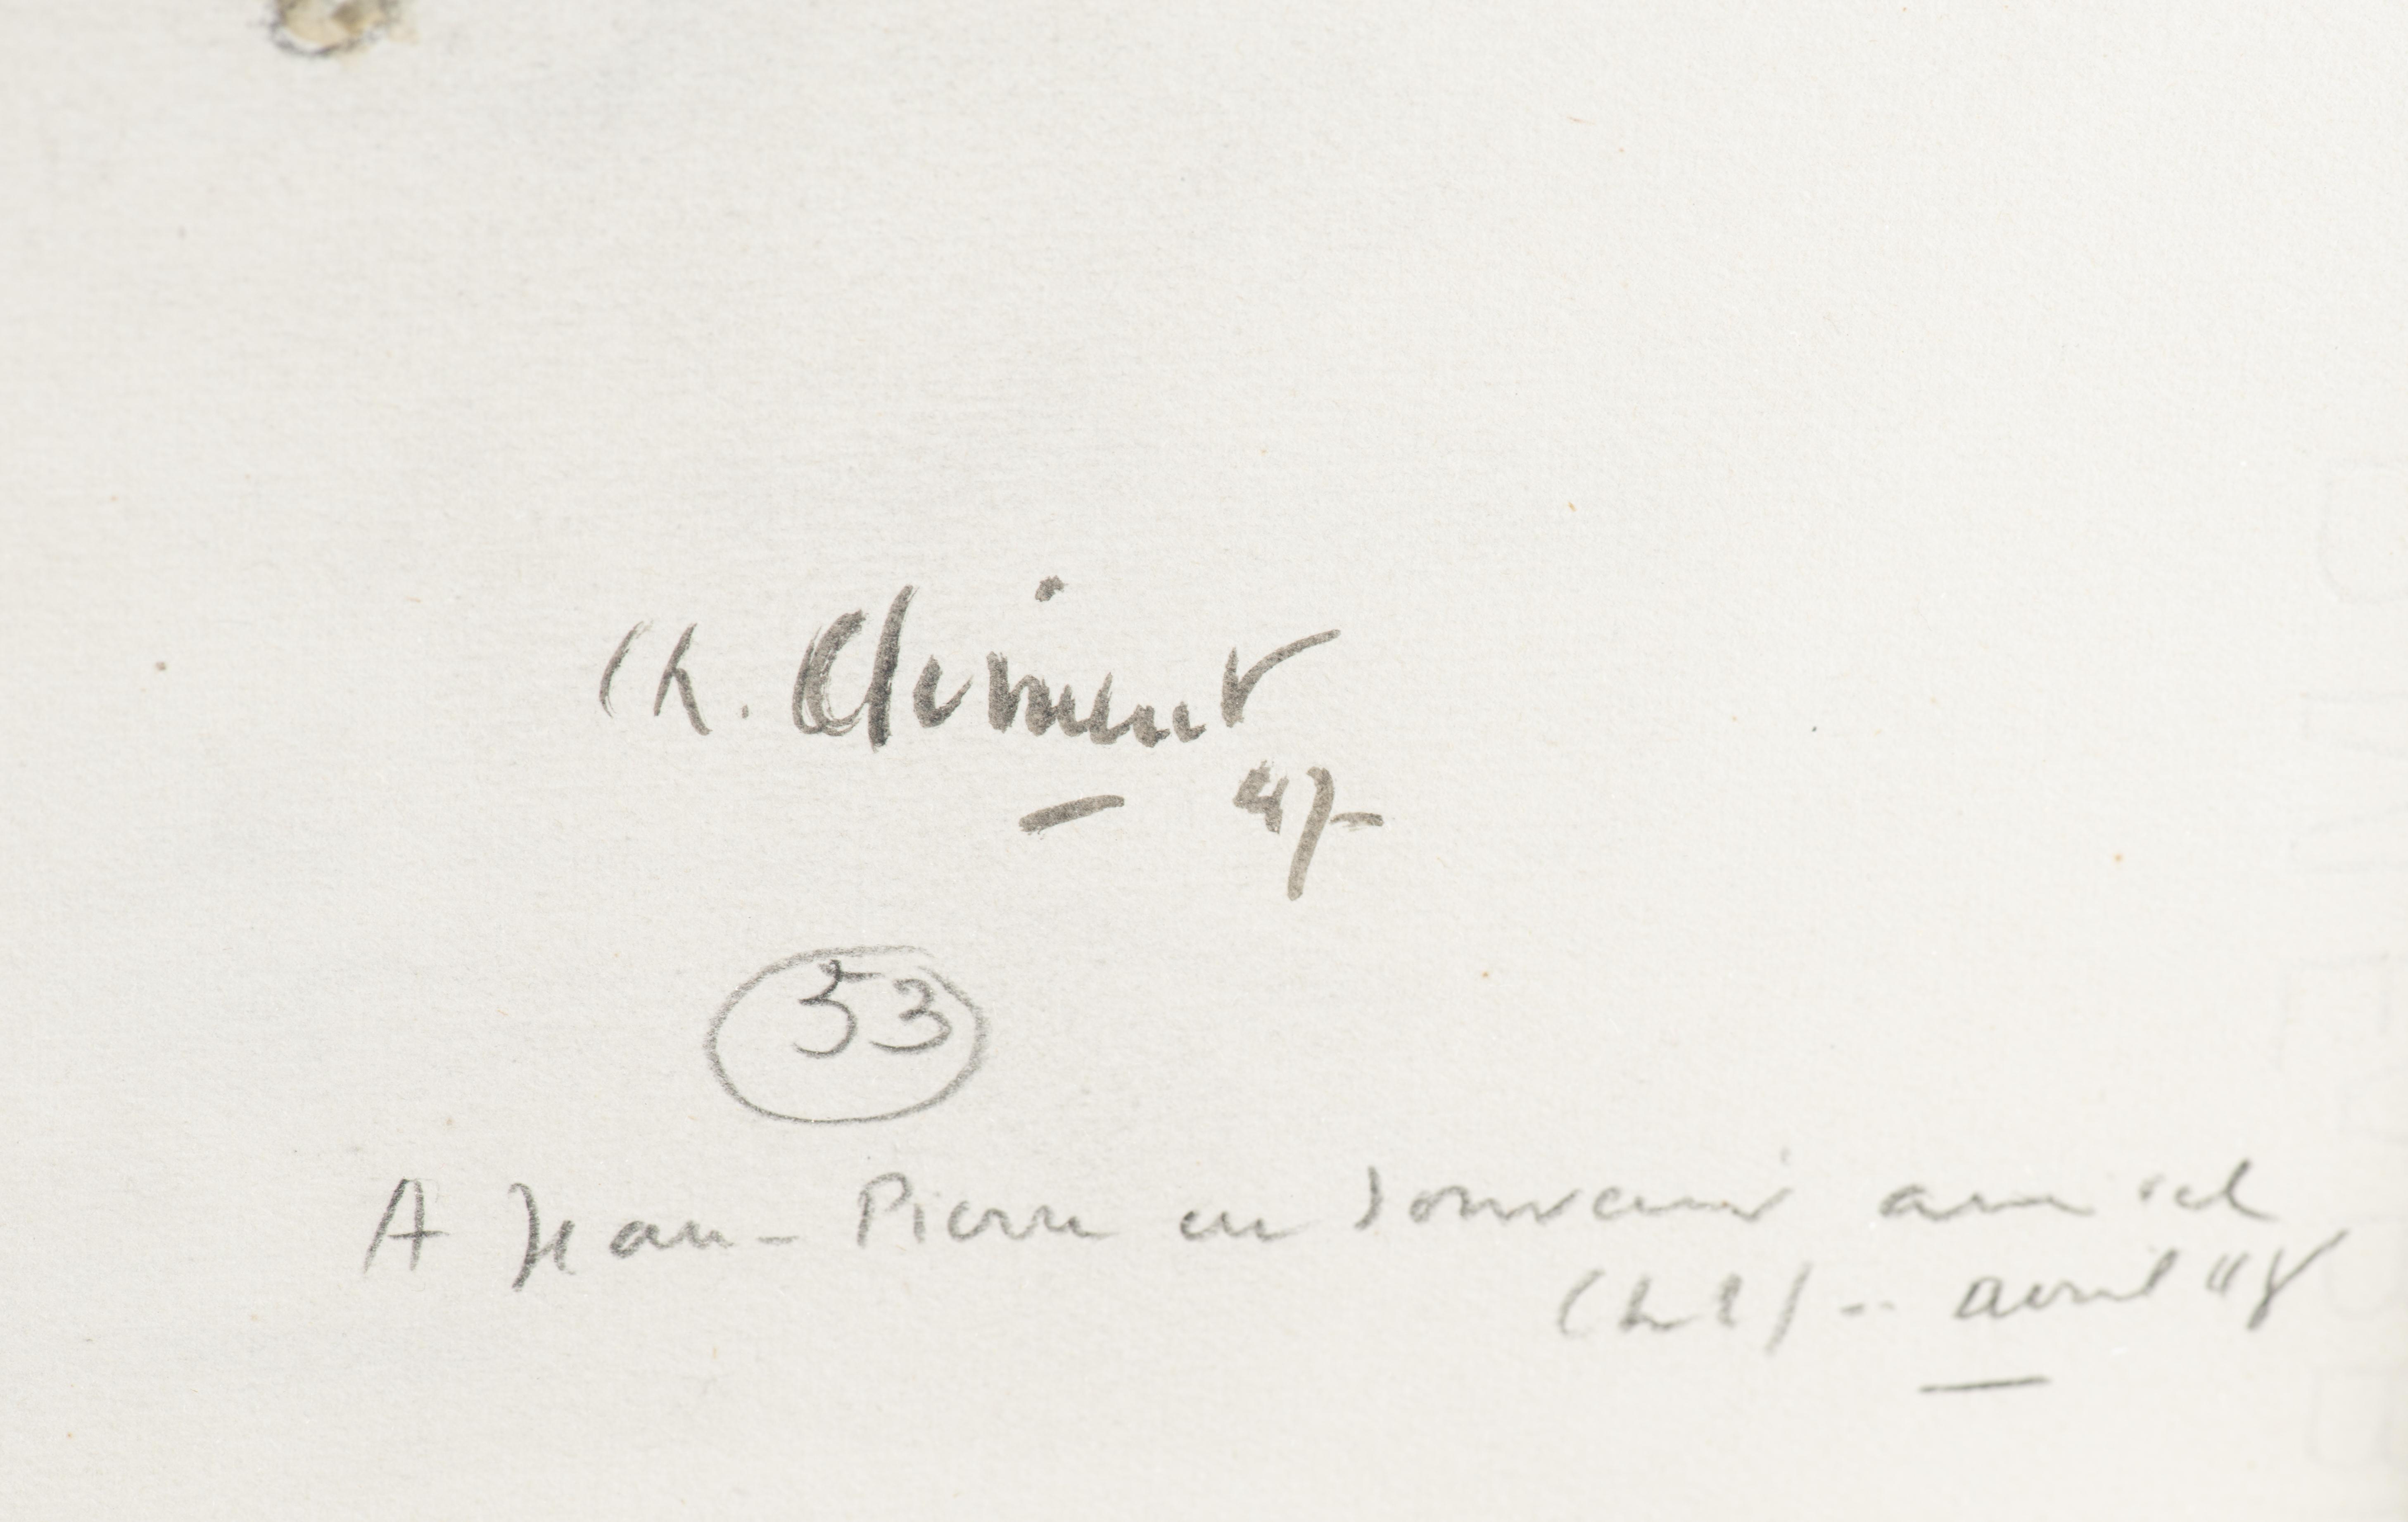 Ch. Clément
47-
53
A Jean-Pierre en souvenir amical
avril 48